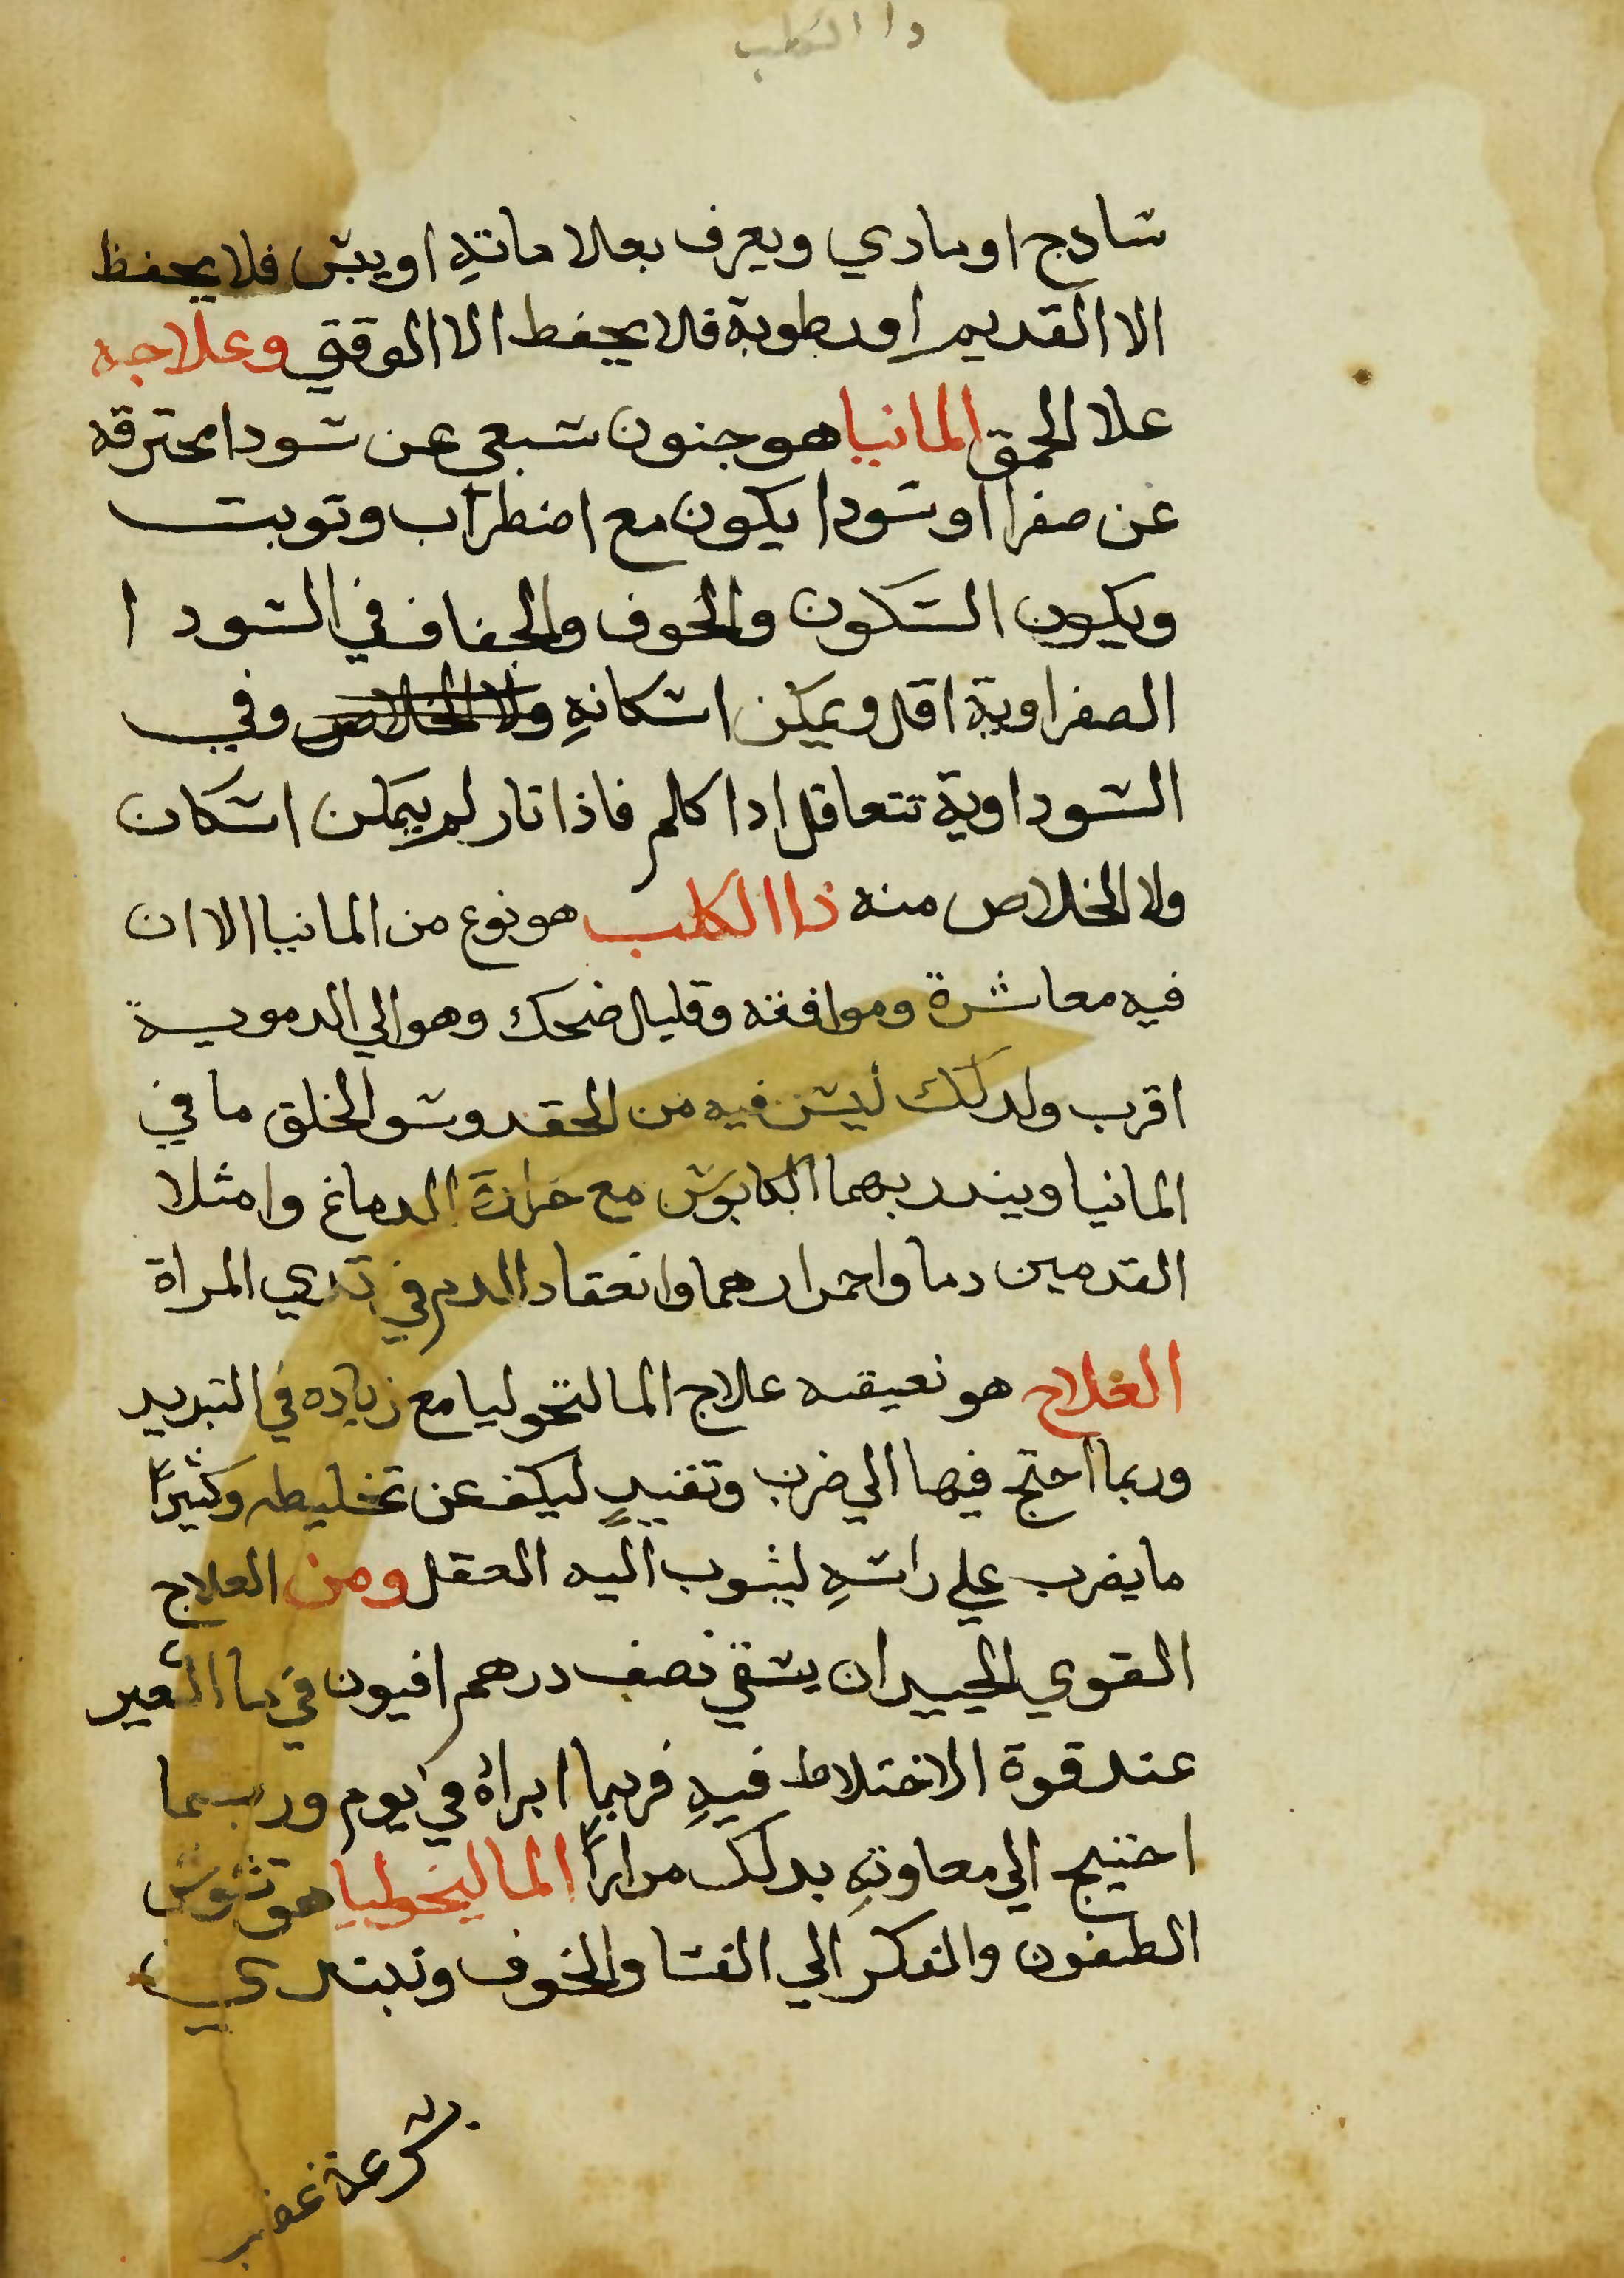 دا الكلب
سادج او مادي ويعرف بعلاماتهِ او يبس فلا يحفظ
الا القديم او رطوبة فلا يحفط الا الوقتي وعلاجه
علا الحمق المانيا هو جنون سبعي عن سودا محترقه
عن صفرا او سودا يكون مع اضطراب وتوبت
ويكون السكون والخوف والجفاف في السودا
الصفراوية اقل ويمكن اسكانهِ ولا الخلاص وفي
السوداوية تتعاقل ادا كلم فاذا تار لم يمكن اسكان
ولا الخلاص منه ذا الكلب هو نوع من المانيا الا ان
فيه معاشرة وموافقه وقليل ضحك وهو الي الدموية
اقرب ولدلك ليس فيه من الحقد وسو الخلق ما في
المانيا ويندر بهما الكابوس مع حرارة الدماغ وامثلا
القدمين دما واحمرارهما وانعقاد الدم في تدي المراة
العلاج هو نعيقه علاج المالنخوليا مع زياده في التبريد
وربما احتج فيها الي ضرب وتقييدٍ ليكف عن تخليطه وكثيرًا
ما يضرب علي راسهِ ليثوب اليه العقل ومن العلاج
القوي الجيد ان يسقي نصف درهم افيون في ما الشعير
عند قوة الاختلاط فيهِ فربما ابراهُ في يوم وربما
احتيج الي معاوتهِ بدلك مرارًا الماليخوليا هو تشوش
الظنون والفكر الي الفسا والخوف ويبتدي
سرعة غضب